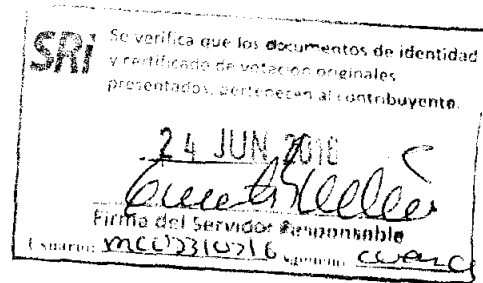 SRi
Se verifica que los documentos de identidad
y certificado de votación originales
presentados, pertenecen al contribuyente.
24 JUN 2010
Firma del Servidor Responsable
Usuario: Agencia: Cuenca